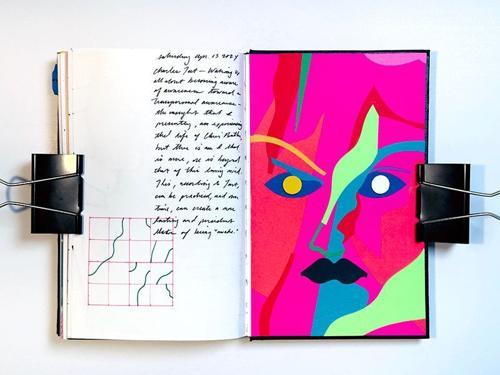 Saturday Apr. 13 2024
Charles Tart — Waking up
all about becoming aware
of awareness toward a
transpersonal awareness.
the that I
presently, am
the life of Chris
but there is an I that
is more, or is beyond
that of this living
This, according to Tart,
can be practiced, and
time, can create a more
lasting and persistent
state of being "awake."